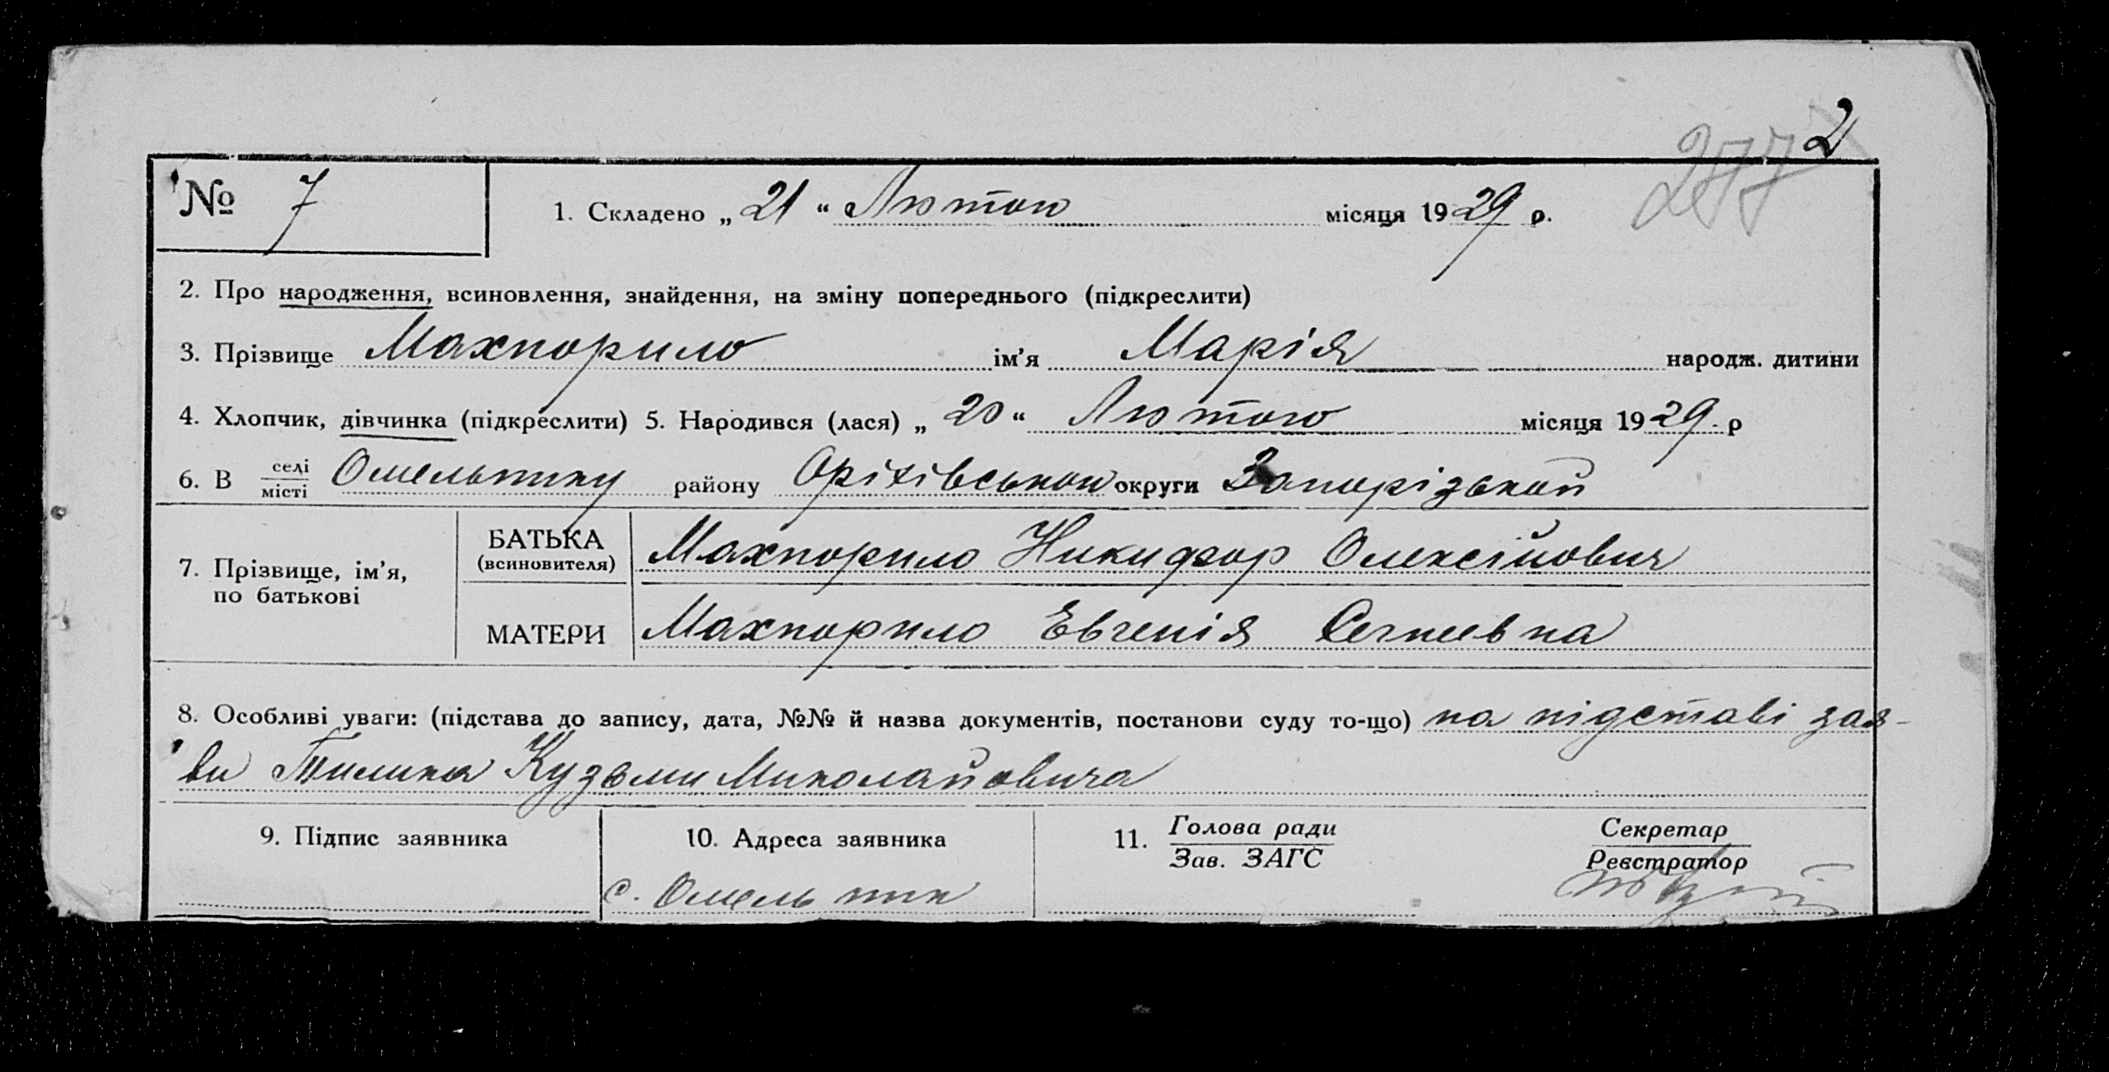 2
277
№ 7
1. Складено „ 21 “ Лютого місяця 1929 р.
2. Про народження, всиновлення, знайдення, на зміну попереднього (підкреслити)
3. Прізвище Махпорило ім’я Марія народж. дитини
4. Хлопчик, дівчинка (підкреслити) 5. Народився (лася) „ 20 “ Лютого місяця 1929 р
6. В селі
місті Омельнику району Оріхівського округи Запорізькой
7. Прізвище, ім’я,
по батькові
БАТЬКА
(всиновителя)
Махпорило Никифор Олексійович
МАТЕРИ
Махпорило Евгенія Сергеевна
8. Особливі уваги: (підстава до запису, дата, №№ й назва документів, постанови суду то-що) на підставі зая-
ви Кузьми Миколайовича
9. Підпис заявника
10. Адреса заявника
с. Омельник
11. Голова ради
Зав. ЗАГС
Секретар
Реєстратор